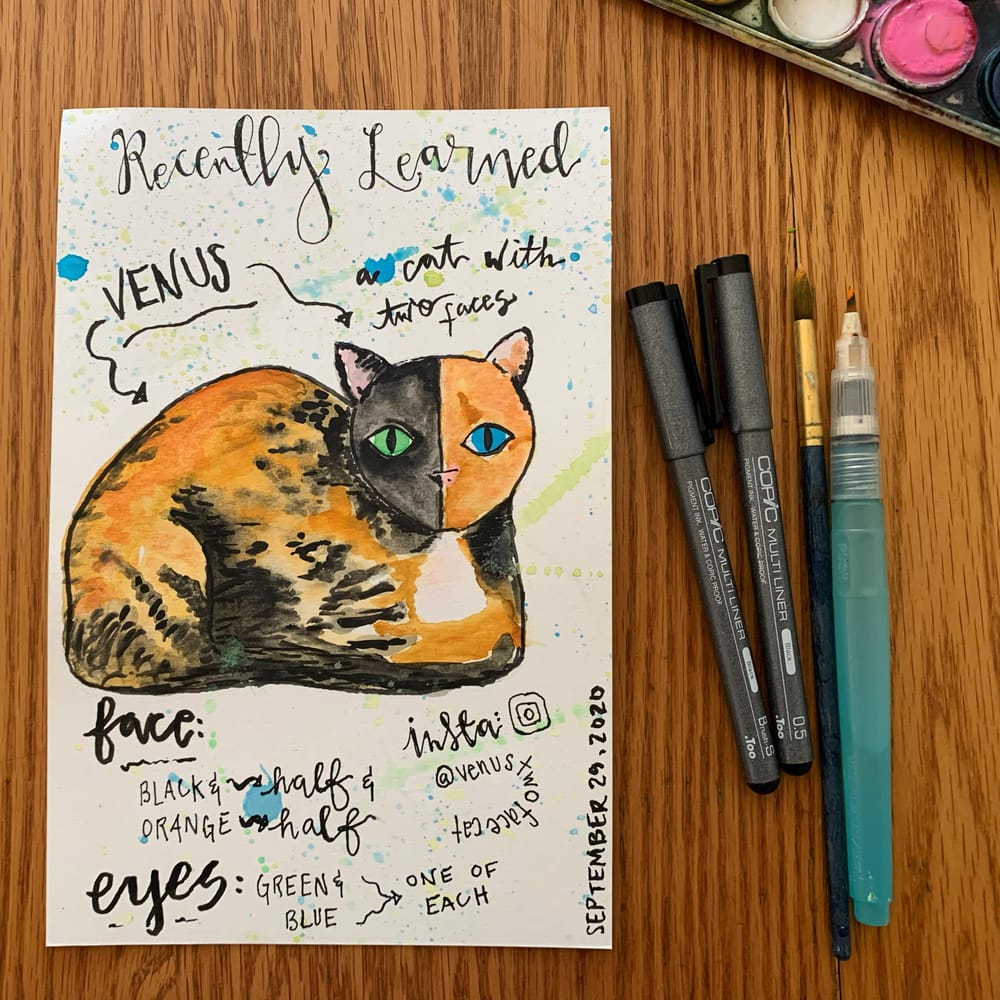 Recently Learned
VENUS
a cat with
two faces
face:
BLACK & half &
ORANGE half
eyes: GREEN &
BLUE
ONE OF
EACH
insta:
@venustwofacecat
SEPTEMBER 29, 2020
COPIC MULTI LINER
PIGMENT INK, WATER & COPIC PROOF
Black
Brush S
.Too
COPIC MULTI LINER
PIGMENT INK, WATER & COPIC PROOF
Black
0.5
.Too